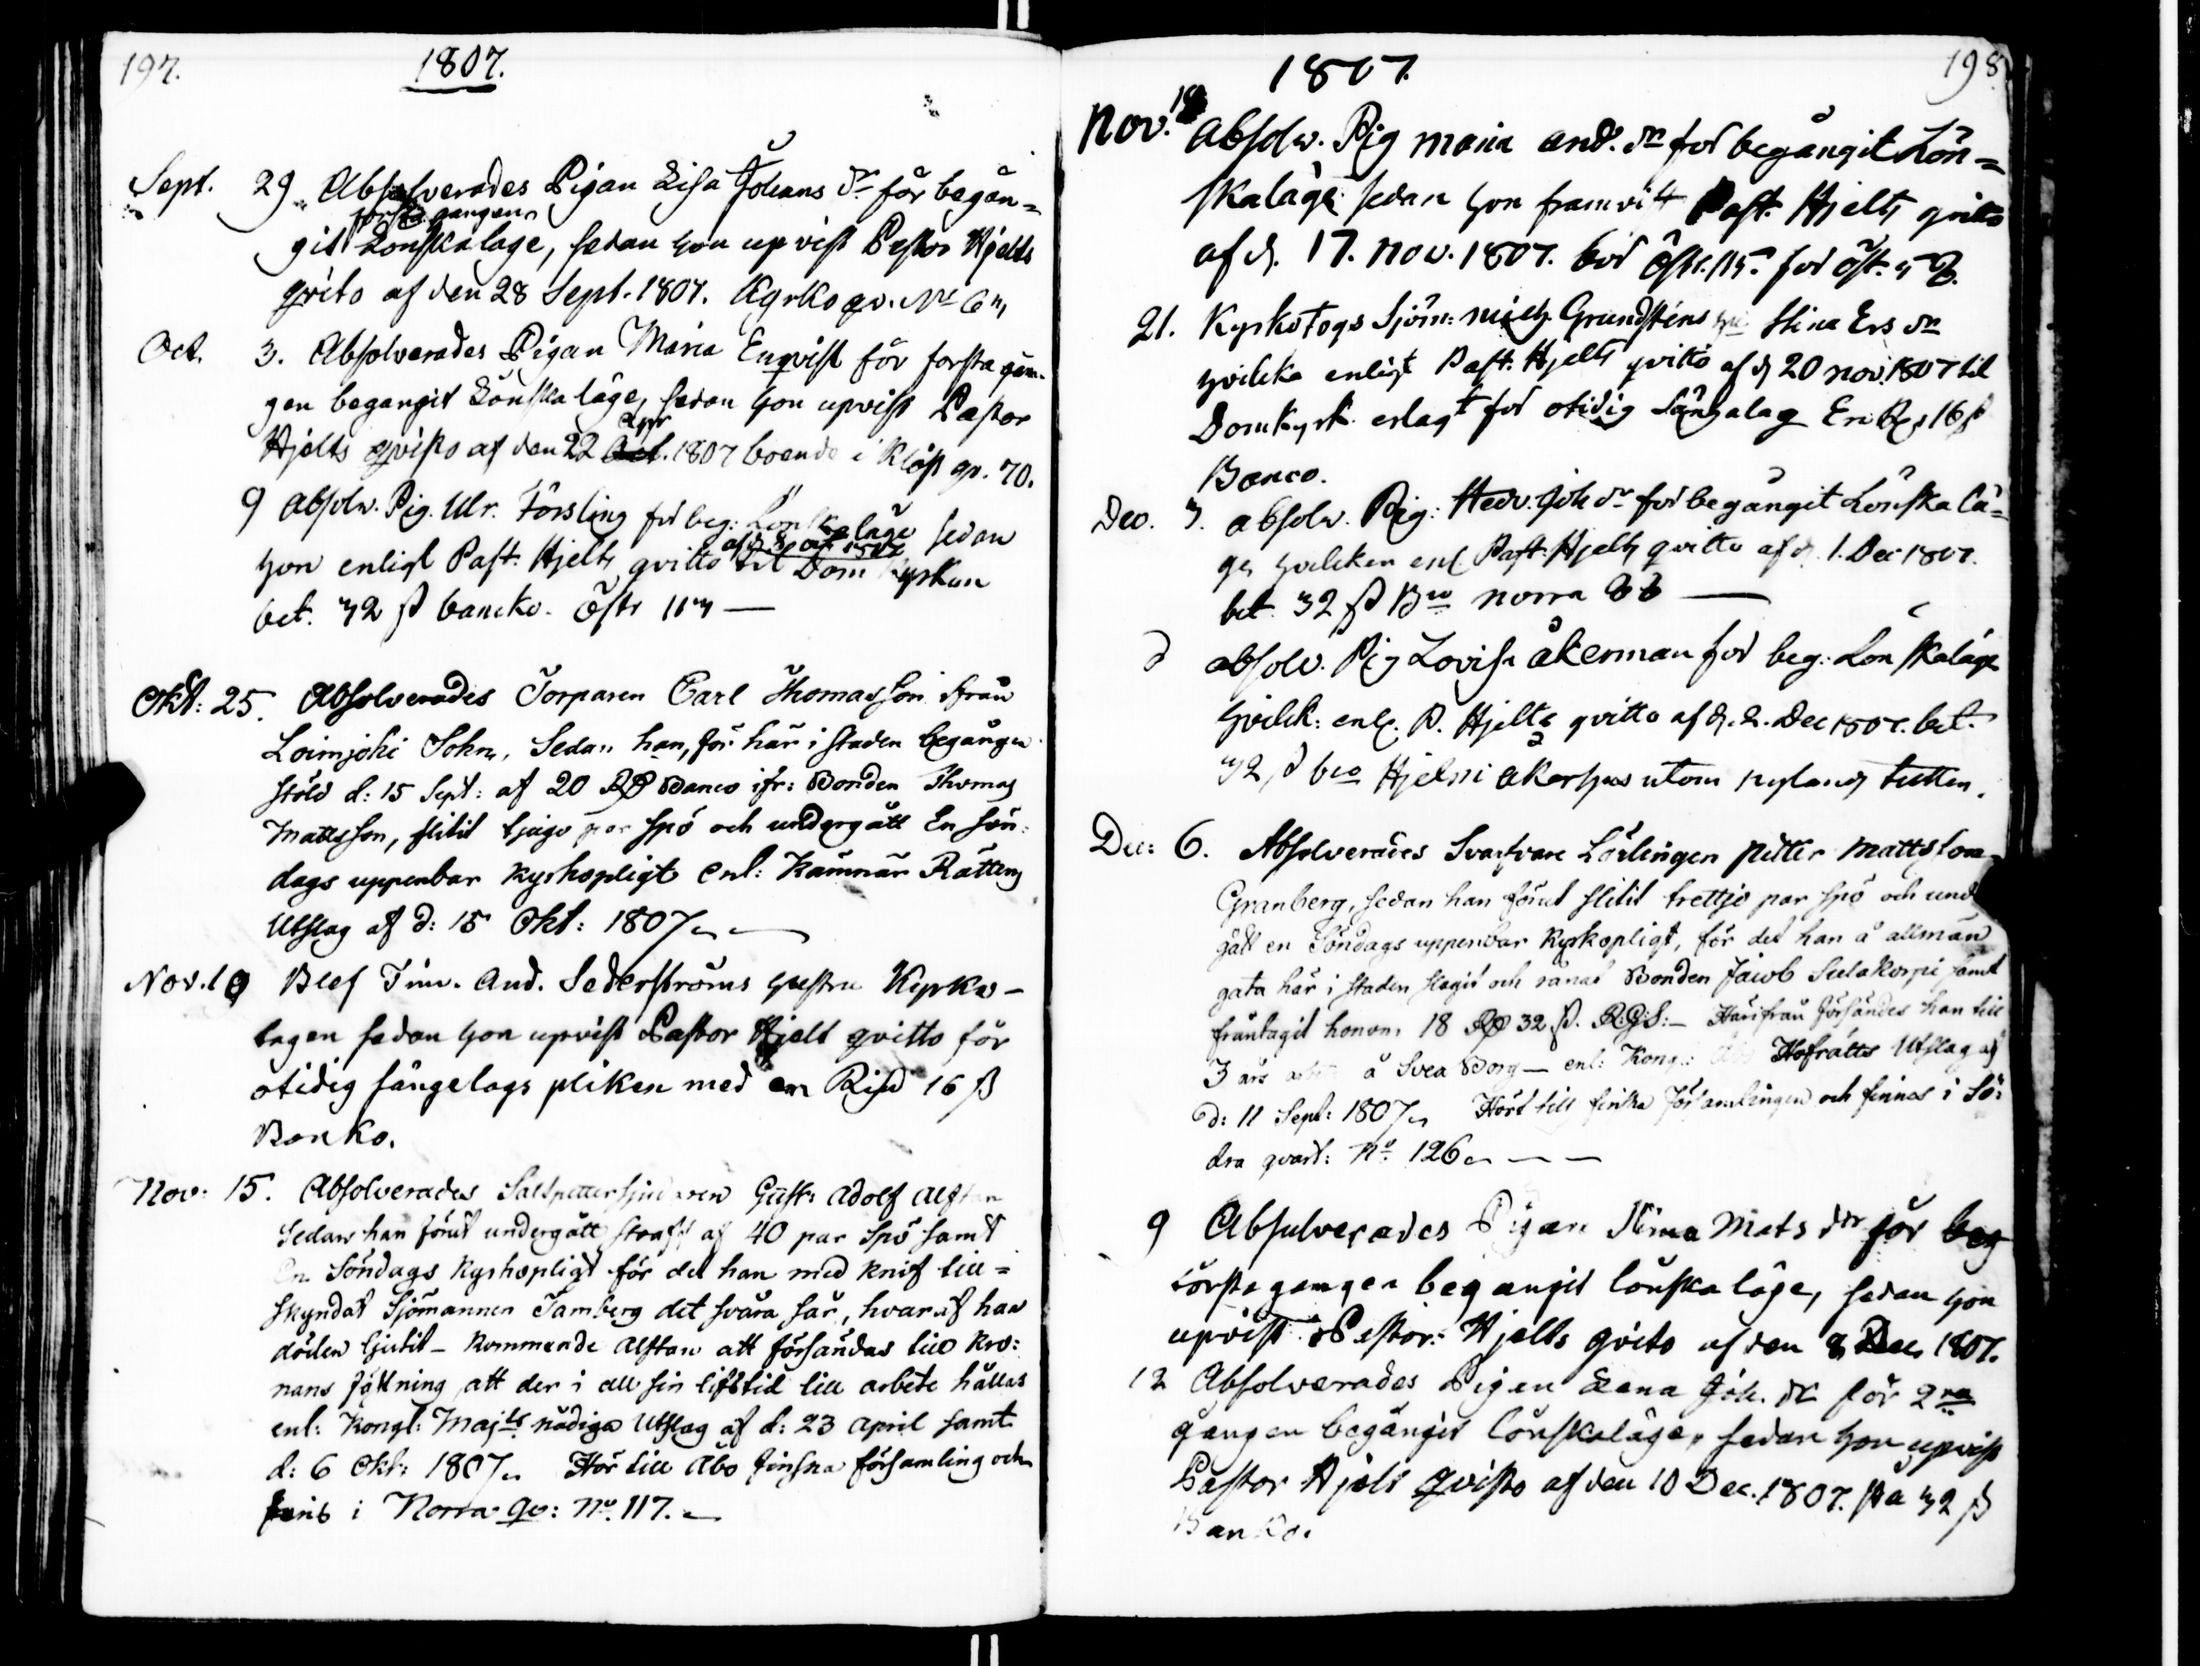 197.
1807.
Sept. 29 Absolverades Pigan Lisa Johans dr för begån=
första gangen
git Lönskalage, sedan hon upvist Pastor Hjelts
qvito af den 28 Sept. 1807. Kyrko qv. No 6
Oct. 3. Absolverades Pigan Maria Enqvist för första gån-
gen begangit Lönskaläge, sedan hon upvist Pastor
Apr
Hjelts qvitto af den 22 Oct. 1807 boende i Klöst qv. 70.
9 Absolv. Pig. Ulr. Törsling för beg: Lönskaläge sedan
hon enligt Past. Hjelts qvitto af d. 8 oct 1807 til Dom Kyrkan
bet. 32 ß bancko. Östr 113 —
Okt: 25. Absolverades Torparen Carl Thomasson från
Loimjoki Sokn, Sedan han, för här i staden begången
stöld d: 15 Sept: af 20 RD Banco ifr: Bonden Thomas
Mattsson, slitit tjugo par spö och undergått En sön:
dags uppenbar kyrkopligt enl: Kämnärs Rättens
Utslag af d: 15 Okt: 1807
Nov. 10 Blef Tim. And. Sederströms hustru Kyrko-
tagen sedan hon upvist Pastor Hjelt qvitto för
otidig sängelags pliken med en Risd 16 ß
Banko.
Nov: 15. Absolverades Saltpettersjudaren Gust: Adolf Alftan
Sedan han förut undergått straff af 40 par Spö samt
En Söndags Kyrkopligt för det han med knif till=
skyndat Sjömannen Tamberg det svåra sår, hvaraf han
döden ljutit - kommande Alftan att försändas till Kro:
nans fästning att der i all sin lifstid till arbete hållas
enl: Kongl: Majts nådiga Utslag af d: 23 April samt
d: 6 Okt: 1807. Hör till Åbo Finska församling och
finns i Norra qv: No. 117.
1807.
198
Nov. 18 Absolv. Pig Maria And. dr för begångit Lön=
skaläge sedan hon framvist Past. Hjelts qvitto
af d. 17. Nov. 1807. bor Östr. 115. för öst. 5 B.
21. Kyrkotogs Sjöm: Mich. Grundstens hu Stina Ers dr
hvilcka enligt Past. Hjelts qvitto af d 20 nov. 1807 til
Domkyrk. erlagt för otidig Sängalag En Rd 16 ß
Banco.
Dec. 3. absolv. Pig: Hedv. Joh dr för begångit Lönskalä=
ge, hvilcken enl. Past. Hjelts qvitto af d. 1. Dec 1807.
bet 32 ß Bco norra 86 —
d absolv. Pig Lovisa Åkerman för beg: Lönskaläge
hvilck: enl. P. Hjelts qvitto af d. 2. Dec 1807. bet.
32 ß bco Hjelmi Åkerhus utom nylands tullen.
Dec: 6. Absolverades Svarfvare Lärlingen Petter Mattsson
Granberg, sedan han förut slitit trettjo par spö och und
gått en Söndags uppenbar Kyrkopligt, för det han å allmän
gata här i staden slagit och rånat Bonden Jacob Seelakorpi samt
fråntagit honom 18 RD 32 ß. R.G.S:- Härifrån försändes han till
3 års å Svea Borg — enl: Kong: Hofrätts Utslag af
d: 11 Sept: 1807. Hört till finska Församlingen och finnes i Sö:
dra qvart: No. 126
9 Absolverades Pigan Stina Mats dr för beg
första gangen begangit lönskaläge, sedan hon
upvist Pastor: Hjelts qvito af den 8 Dec. 1807.
12 Absolverades Pigan Lena Joh. dr för 2ra
gången begångit lönskaläge, sedan hon upvist
Pastor Hjelt qvisto af den 10 Dec. 1807. på 32 ß
Banko.